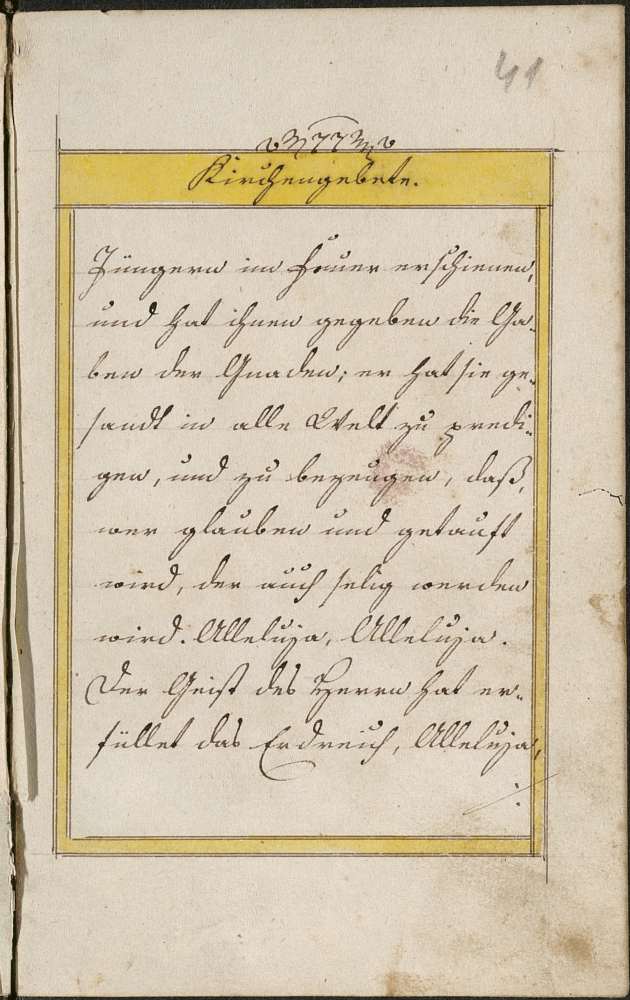 41
Kirchengebete.
Jüngern im Feuer erschienen,
und hat ihnen gegeben die Ga-
ben der Gnaden; er hat sie ge-
sandt in alle Welt zu predi-
gen, und zu bezeugen, daß,
wer glauben und getauft
wird, der auch selig werden
wird. Alleluja, Alleluja.
Der Geist des Herrn hat er-
füllet das Erdreich, Alleluja,